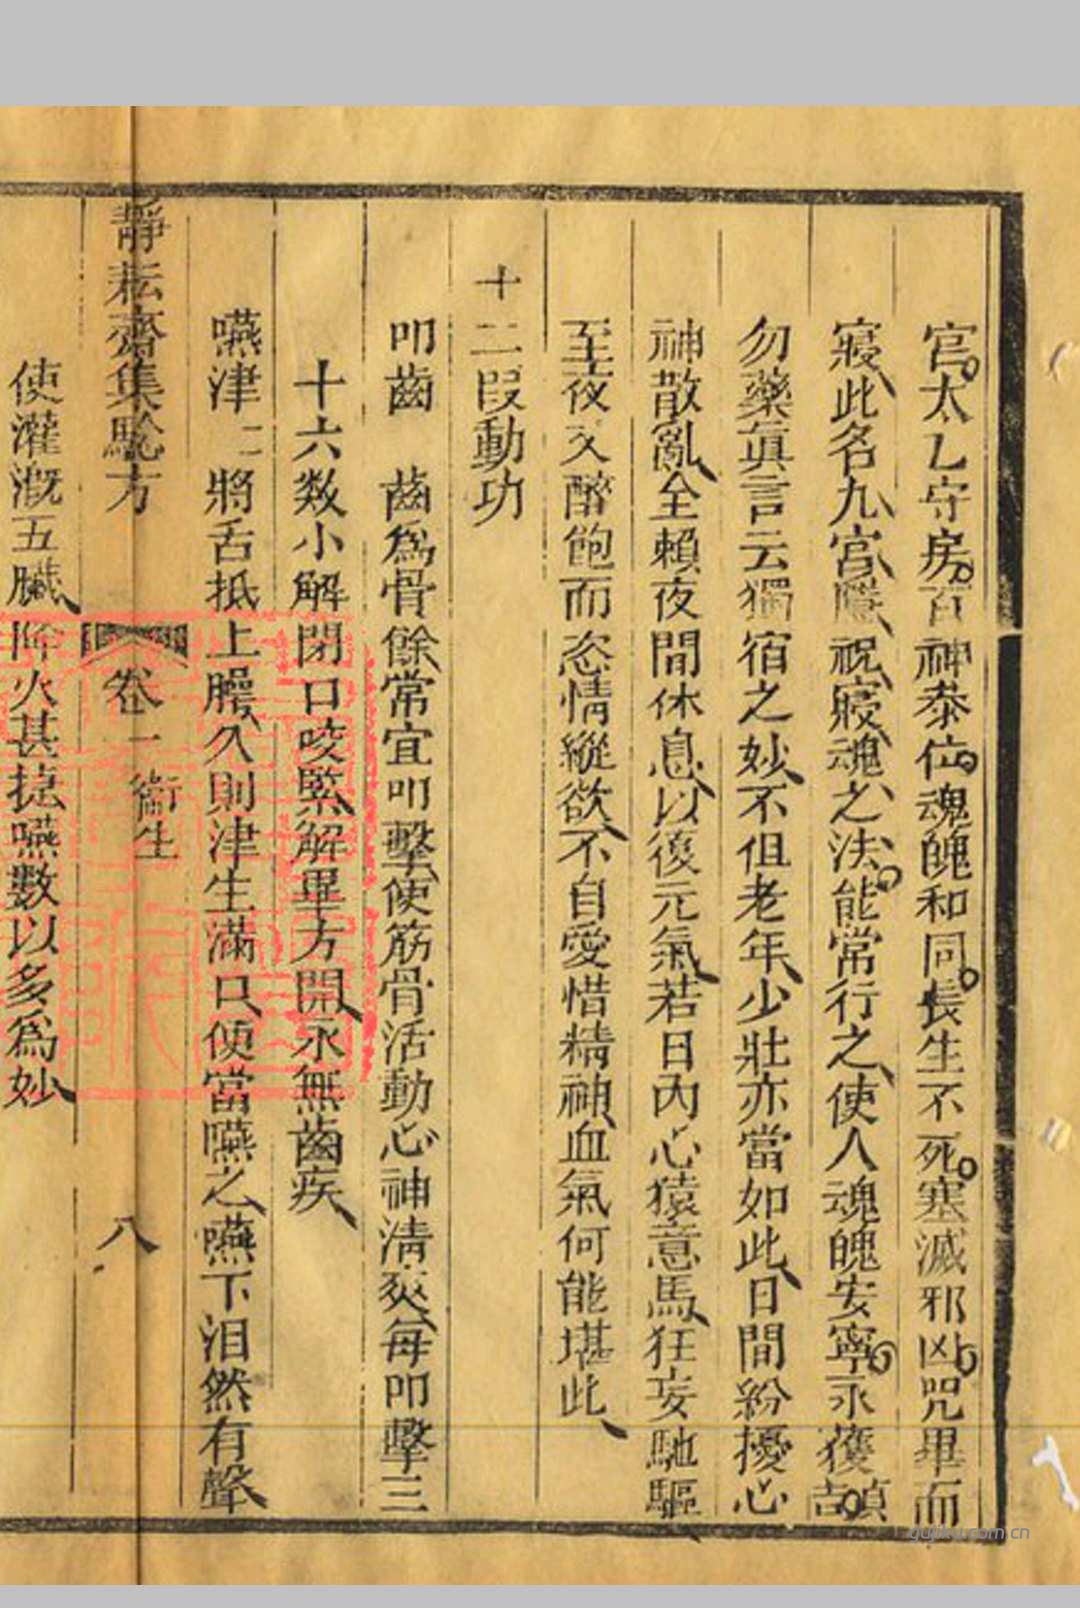 官太乙守房百神泰位魂魄和同長生不死塞滅邪凶咒畢而
寢此名九宮隱祝寢魂之法能常行之使人魂魄安寧永獲貞吉
勿藥眞言云獨宿之妙不但老年少壯亦當如此日間紛擾心
神散亂全賴夜間休息以復元氣若日內心猿意馬狂妄馳驅
至夜又醉飽而恣情縱欲不自愛惜精神血氣何能堪此
十二段動功
叩齒 齒爲骨餘常宜叩擊使筋骨活動心神清爽每叩擊三
十六数小解閉口咬緊解畢方開永無齒疾
嚥津 二將舌抵上腭久則津生滿口便當嚥之嚥下汨然有聲
靜耘齋集騐方
卷一 衞生
八
使灌溉五臟降火甚捷嚥數以多爲妙
gujiku.com.cn